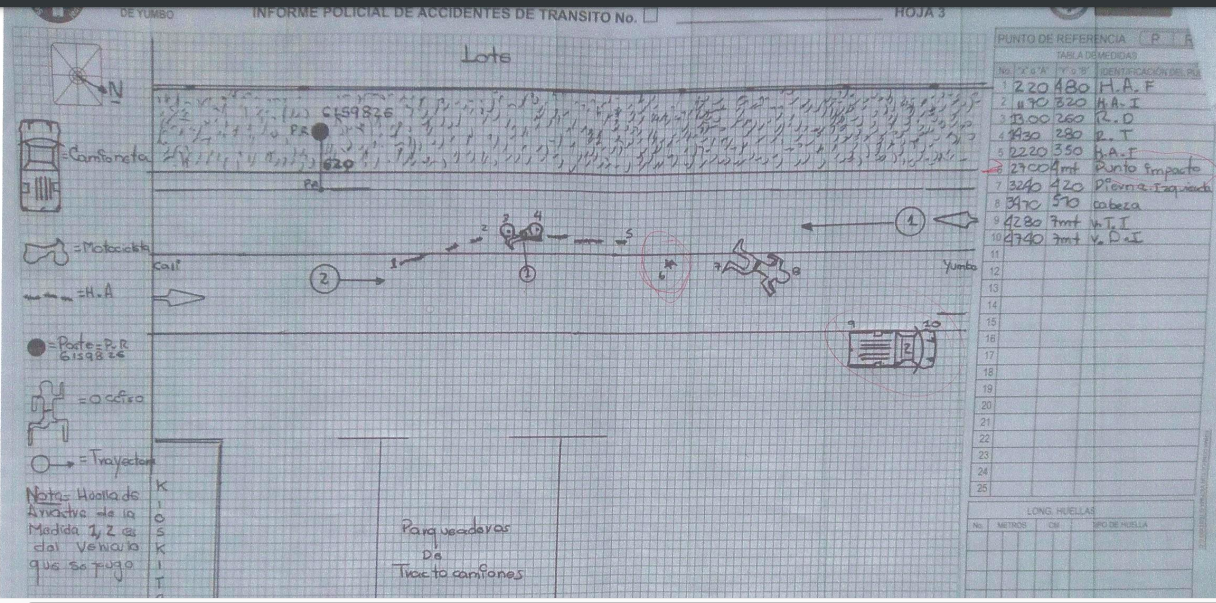 DE YUMBO
INFORME POLICIAL DE ACCIDENTES DE TRANSITO No.
HOJA 3
Lote
N
=Camioneta
=Motociclista
=H.A
=Poste=P.R
6159826
=Occiso
=Trayector
Nota= Huella de
Arrastre de la
Medida 1,2 es
del Vehiculo
que se fugo
6159826
P.R
620
PR
Cali
Yumbo
1
2
3
4
5
6
7
8
9
10
1
2
1
2
K
I
O
S
K
I
T
Parqueaderos
De
Tractocamiones
PUNTO DE REFERENCIA P
TABLA DE MEDIDAS
No. "X" o "A" "Y" o "B" IDENTIFICACIÓN DEL PU
1 220 480 H.A.F
2 1170 320 H.A.I
3 1300 260 R.D
4 1430 280 R.T
5 2220 350 H.A.F
6 2700 4mt Punto impacto
7 3240 420 Pierna Izquierda
8 3470 510 cabeza
9 4280 7mt V.T.I
10 4740 7mt V.D.I
11
12
13
14
15
16
17
18
19
20
21
22
23
24
25
LONG. HUELLAS
No. METROS CM TIPO DE HUELLA